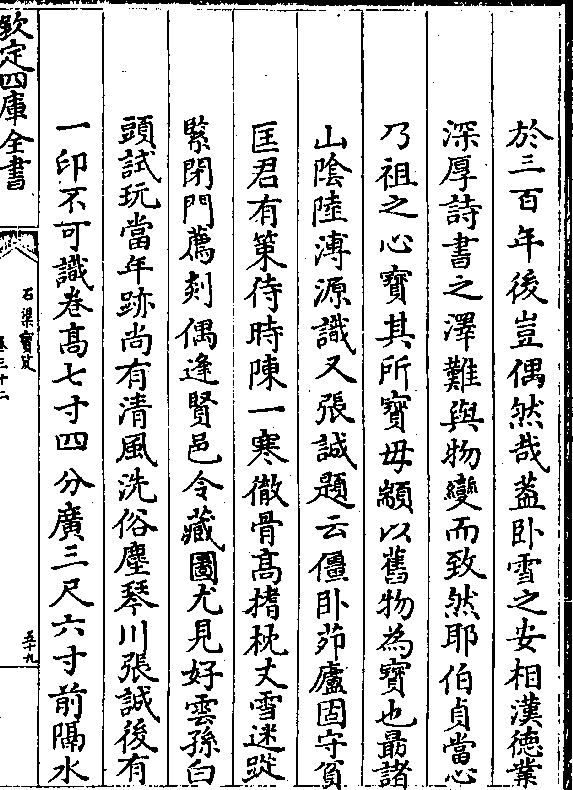 於三百年後豈偶然哉葢卧雪之安相漢德業
深厚詩書之澤難與物變而致然耶伯貞當心
乃祖之心寶其所寶毋顓以舊物為寶也勗諸
山陰陸溥源識又張誠題云僵卧茆廬固守貧
匡君有策待時陳一寒徹骨髙揩枕丈雪迷蹤
緊閉門薦剡偶逢賢邑令藏圖尤見好雲孫白
頭試玩當年跡尚有清風洗俗塵琴川張誠後有
一印不可識卷髙七寸四分廣三尺六寸前隔水
欽定四庫全書
石渠寶笈
卷三十二
五十九